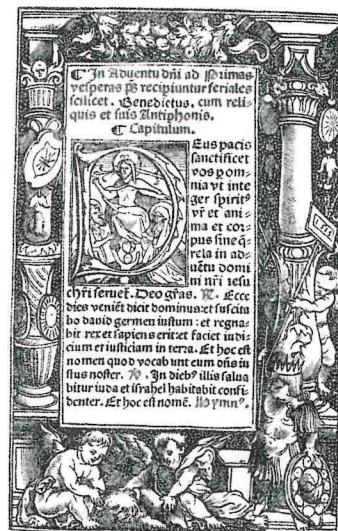 ¶ In Aduentu dñi ad Primas
vesperas ps recipiuntur feriales
scilicet. Benedictus. cum reli⸗
quis et suis Antiphonis.
¶ Capitulum.
DEus pacis
sanctificet
vos p om⸗
nia vt inte
ger spiritꝰ
vr̃ et ani⸗
ma et cor⸗
pus sine q̃⸗
rela in ad⸗
uẽtu domi
ni nr̃i iesu
chr̃i seruet̃. Deo gr̃as. ℟. Ecce
dies veniẽt dicit dominus: et suscita
bo dauid germen iustum: et regna⸗
bit rex et sapiens erit: et faciet iudi⸗
cium et iusticiam in terra. Et hoc est
nomen quod vocab unt eum dñs iu
stus noster. ℣. In diebꝰ illis salua
bitur iuda et israhel habitabit confi⸗
denter. Et hoc est nomẽ. Hymnꝰ.